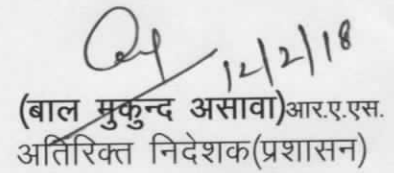 12/2/18
(बाल मुकुन्द असावा)आर.ए.एस.
अतिरिक्त निदेशक(प्रशासन)